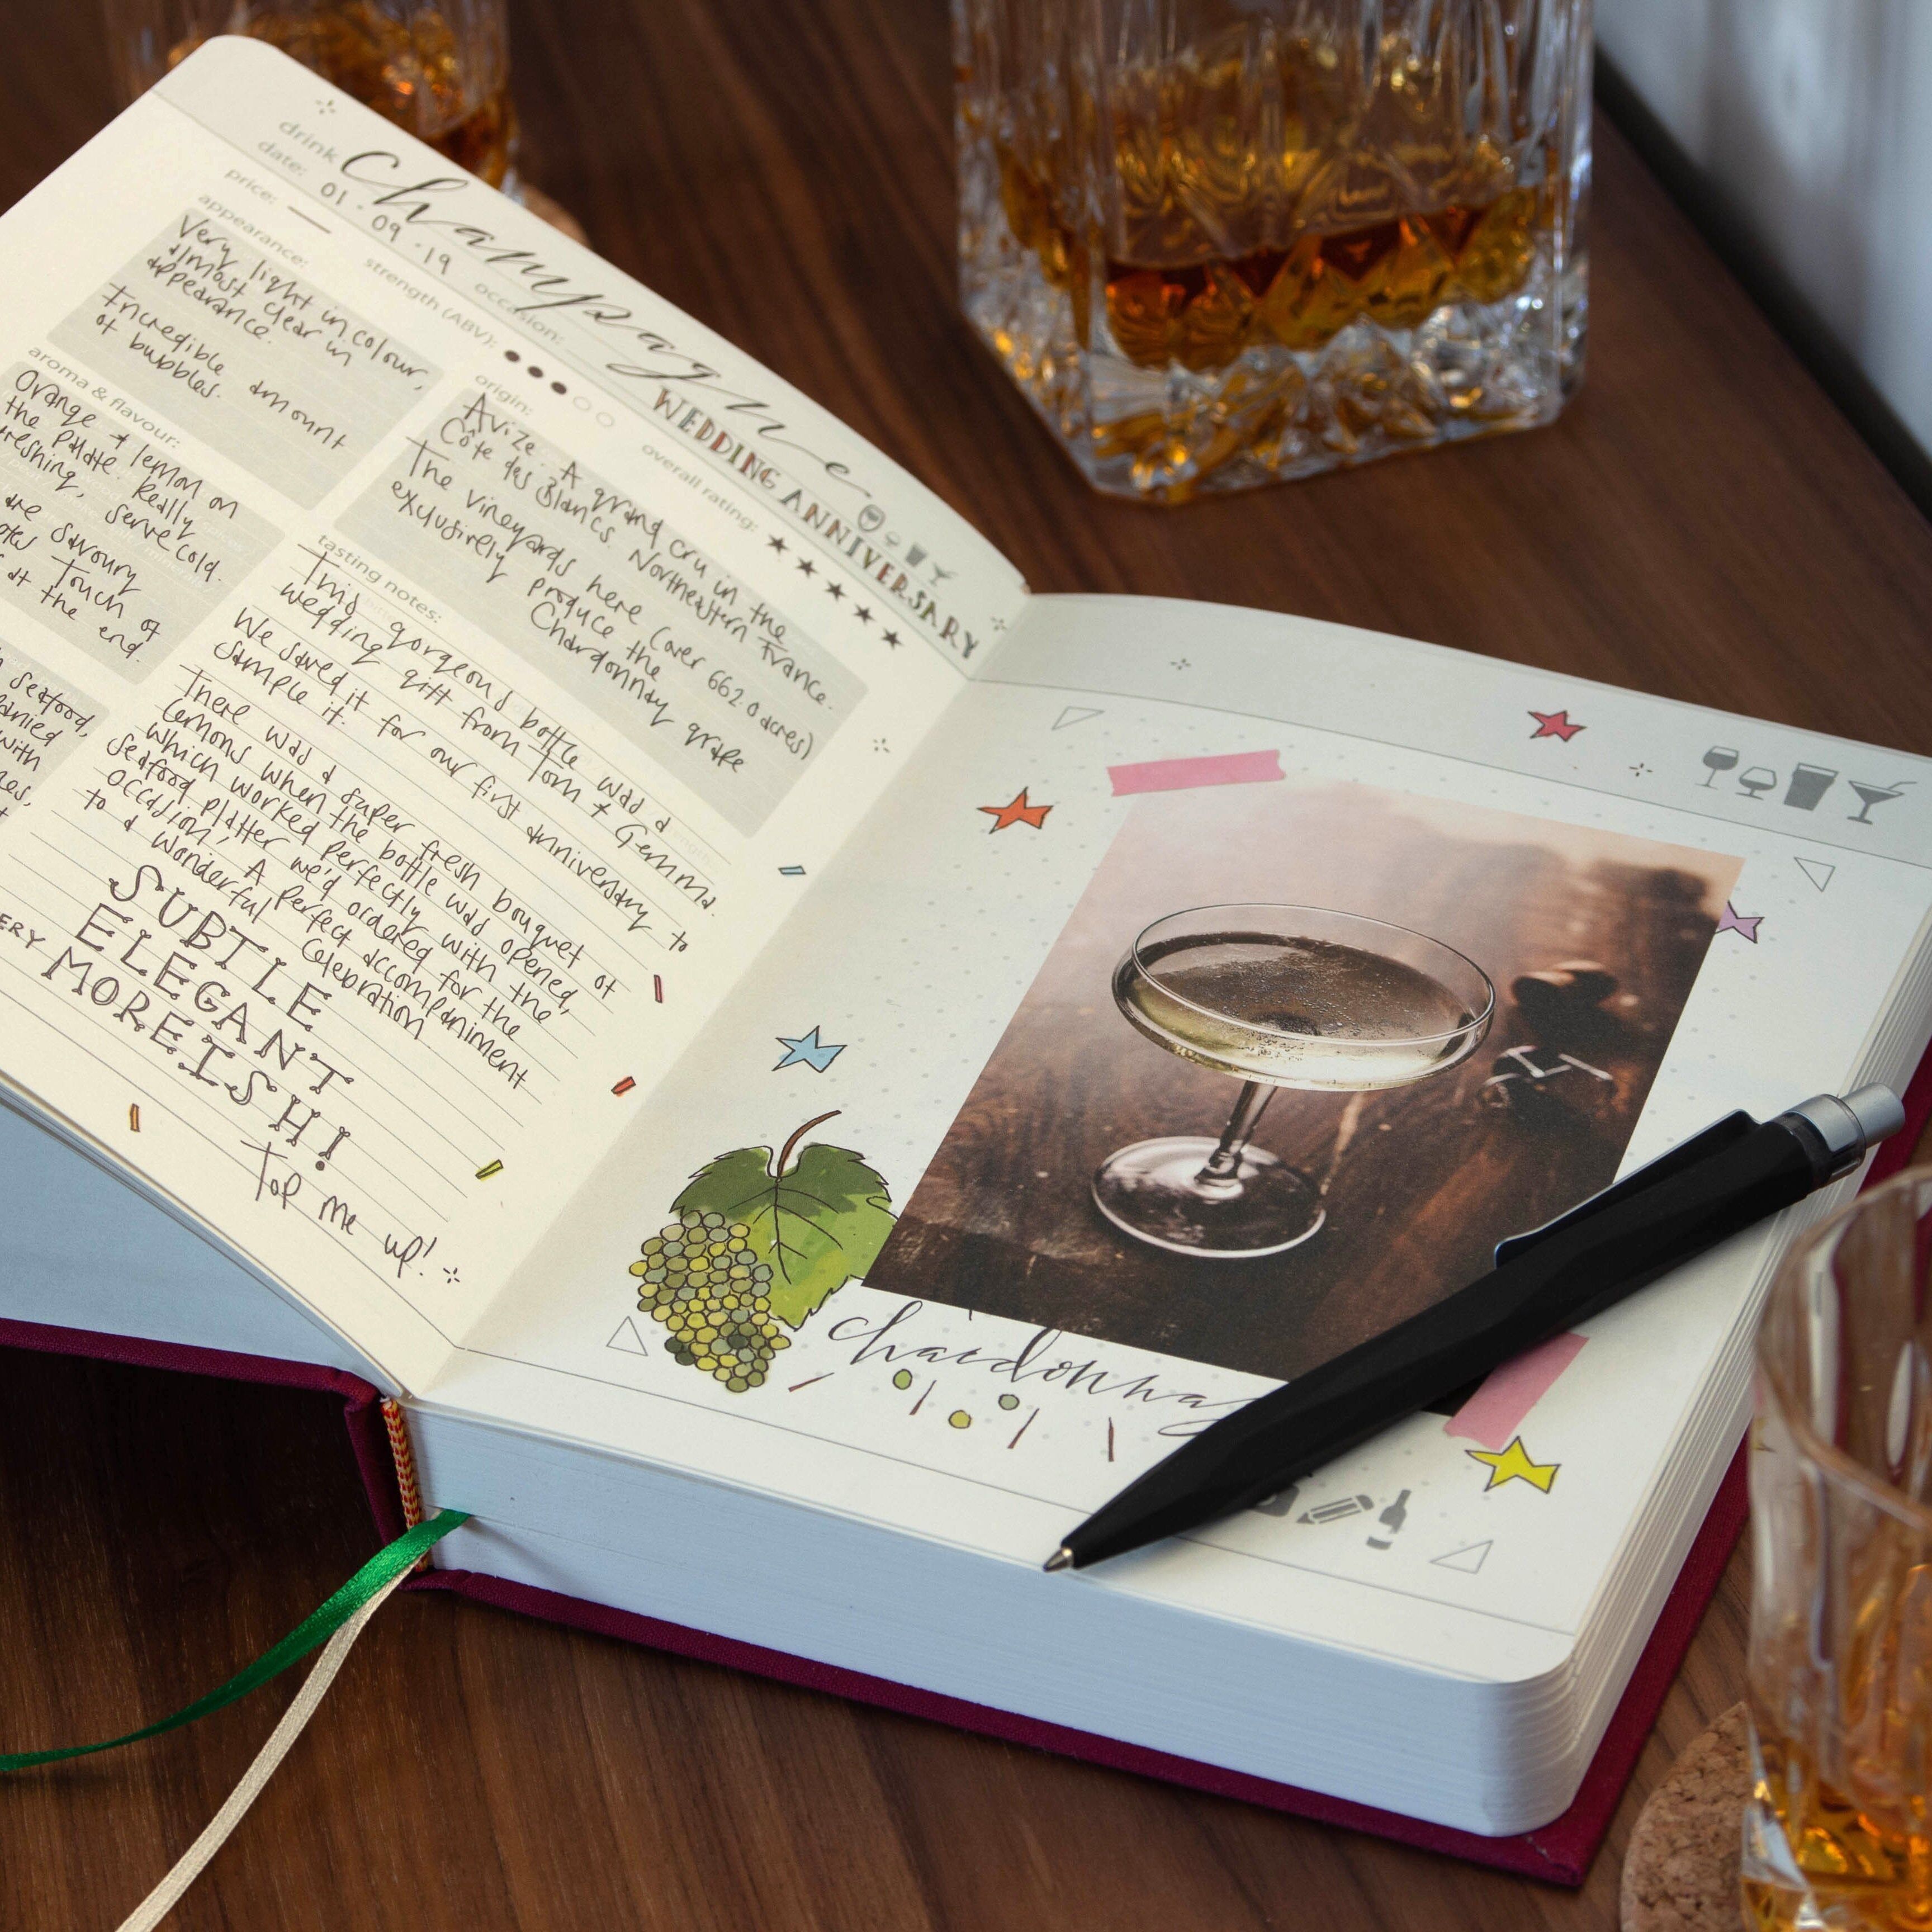 drink Champagne
date: 01 · 09 · 19
occasion: WEDDING ANNIVERSARY
price: —
strength (ABV):
overall rating: ★★★★★
appearance:
Very light in colour,
almost clear in
appearance.
Incredible amount
of bubbles.
origin:
Avize. A grand cru in the
Côte des Blancs. Northeastern France.
The vineyards here (over 662.0 acres)
exclusively produce the
Chardonnay grape
aroma & flavour:
Orange + lemon on
the palate. Really
serve cold.
are savoury
Touch of
at the end.
seafood,
with
tasting notes:
This gorgeous bottle was a
wedding gift from Tom + Gemma.
We saved it for our first anniversary to
sample it.
There was a super fresh bouquet of
lemons when the bottle was opened,
which worked perfectly with the
seafood platter we'd ordered for the
occasion, A perfect accompaniment
to a wonderful celebration
SUBTLE
ELEGANT
MOREISH!
Top me up!
chardonnay